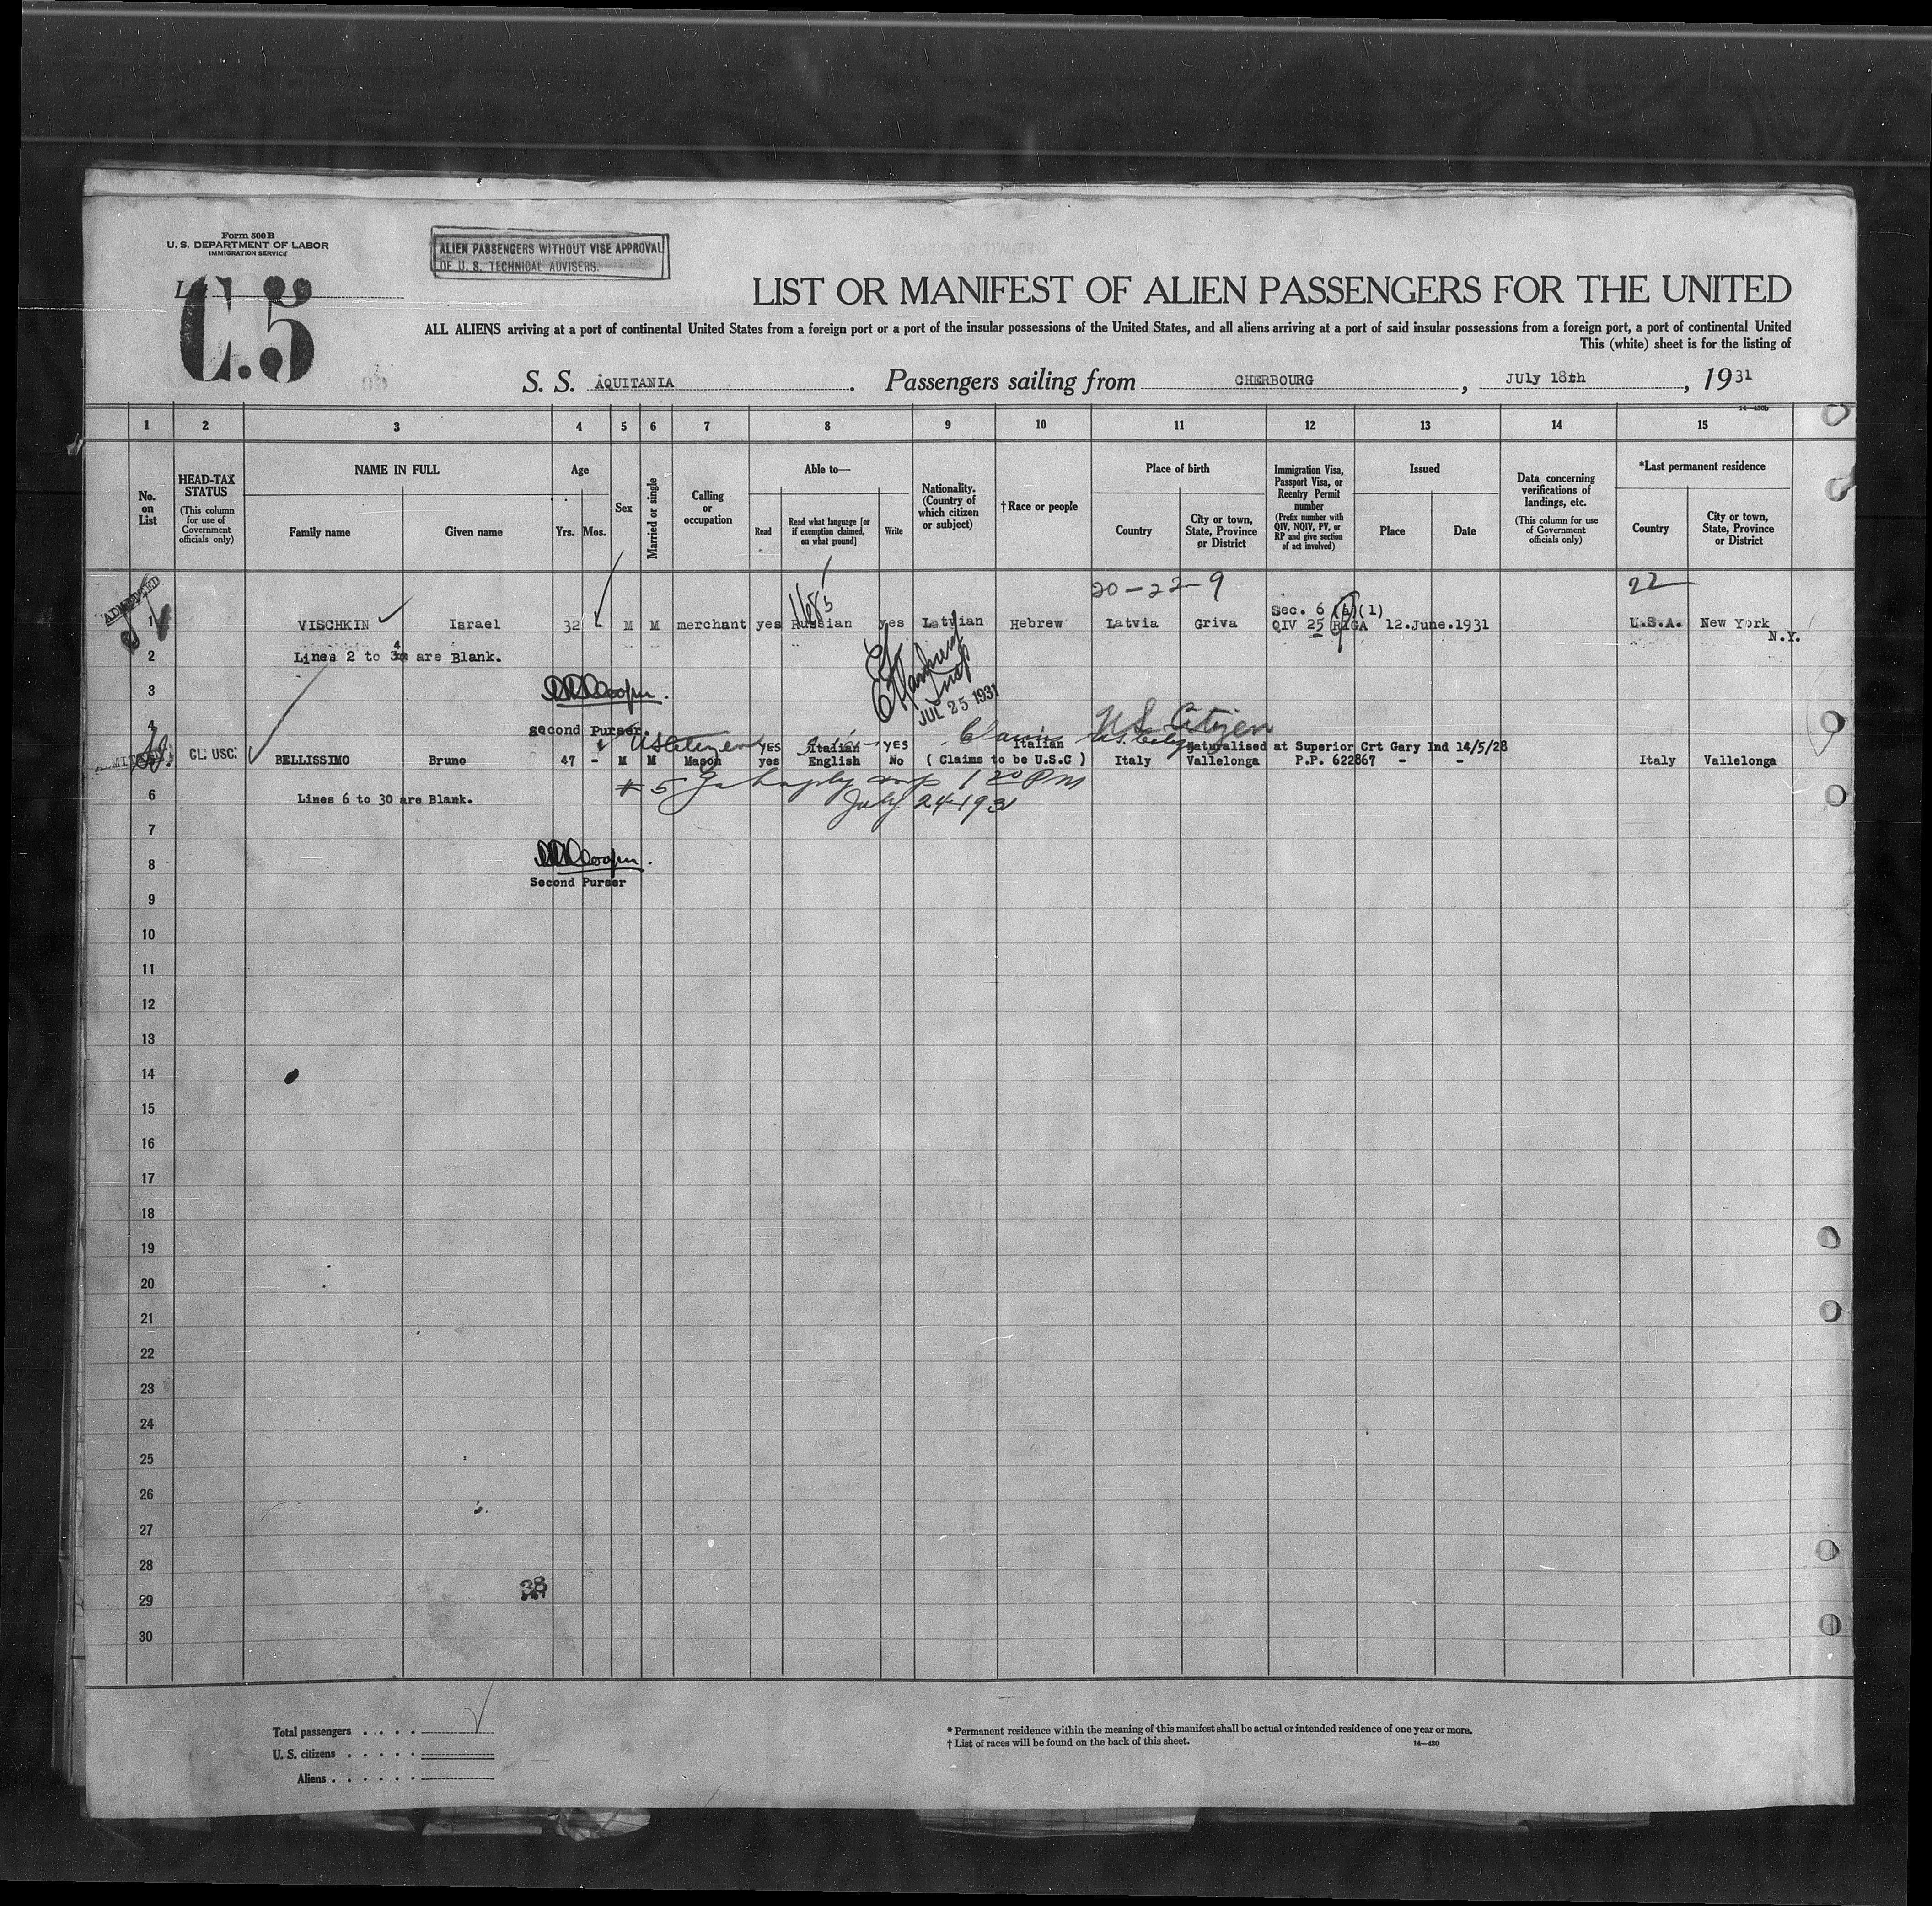 Form 500 B
U. S. DEPARTMENT OF LABOR
IMMIGRATION SERVICE
ALIEN PASSENGERS WITHOUT VISE APPROVAL
OF U. S. TECHNICAL ADVISERS.
C.5
LIST OR MANIFEST OF ALIEN PASSENGERS FOR THE UNITED
ALL ALIENS arriving at a port of continental United States from a foreign port or a port of the insular possessions of the United States, and all aliens arriving at a port of said insular possessions from a foreign port, a port of continental United
This (white) sheet is for the listing of
S. S. AQUITANIA. Passengers sailing from CHERBOURG, JULY 18th, 1931
1 2 3 4 5 6 7 8 9 10 11 12 13 14 15
No. on List
HEAD-TAX STATUS (This column for use of Government officials only)
NAME IN FULL
Family name
Given name
Age
Yrs. Mos.
Sex
Married or single
Calling or occupation
Able to—
Read
Read what language [or if exemption claimed, on what ground]
Write
Nationality. (Country of which citizen or subject)
†Race or people
Place of birth
Country
City or town, State, Province or District
Immigration Visa, Passport Visa, or Reentry Permit number (Prefix number with QIV, NQIV, PV, or RP and give section of act involved)
Issued
Place
Date
Data concerning verifications of landings, etc. (This column for use of Government officials only)
*Last permanent residence
Country
City or town, State, Province or District
ADMITTED
20-22-9
22
Sec. 6 (a)(1)
1 VISCHKIN Israel 32 M M merchant yes Russian yes Latvian Hebrew Latvia Griva QIV 25 RIGA 12.June.1931 U.S.A. New York
N.Y.
2 Lines 2 to 4 are Blank.
3
JUL 25 1931
4 second Purser.
US Citizen
Claims US Citizen
YES Italian YES Italian Naturalised at Superior Crt Gary Ind 14/5/28
CL. USC. BELLISSIMO Bruno 47 - M M Mason yes English No ( Claims to be U.S.C ) Italy Vallelonga P.P. 622867 - - Italy Vallelonga
July 24 1931
6 Lines 6 to 30 are Blank.
7
8
Second Purser
9
10
11
12
13
14
15
16
17
18
19
20
21
22
23
24
25
26
27
28
29
30
Total passengers . . . .
U. S. citizens . . . . .
Aliens . . . . . .
* Permanent residence within the meaning of this manifest shall be actual or intended residence of one year or more.
† List of races will be found on the back of this sheet.
14—430